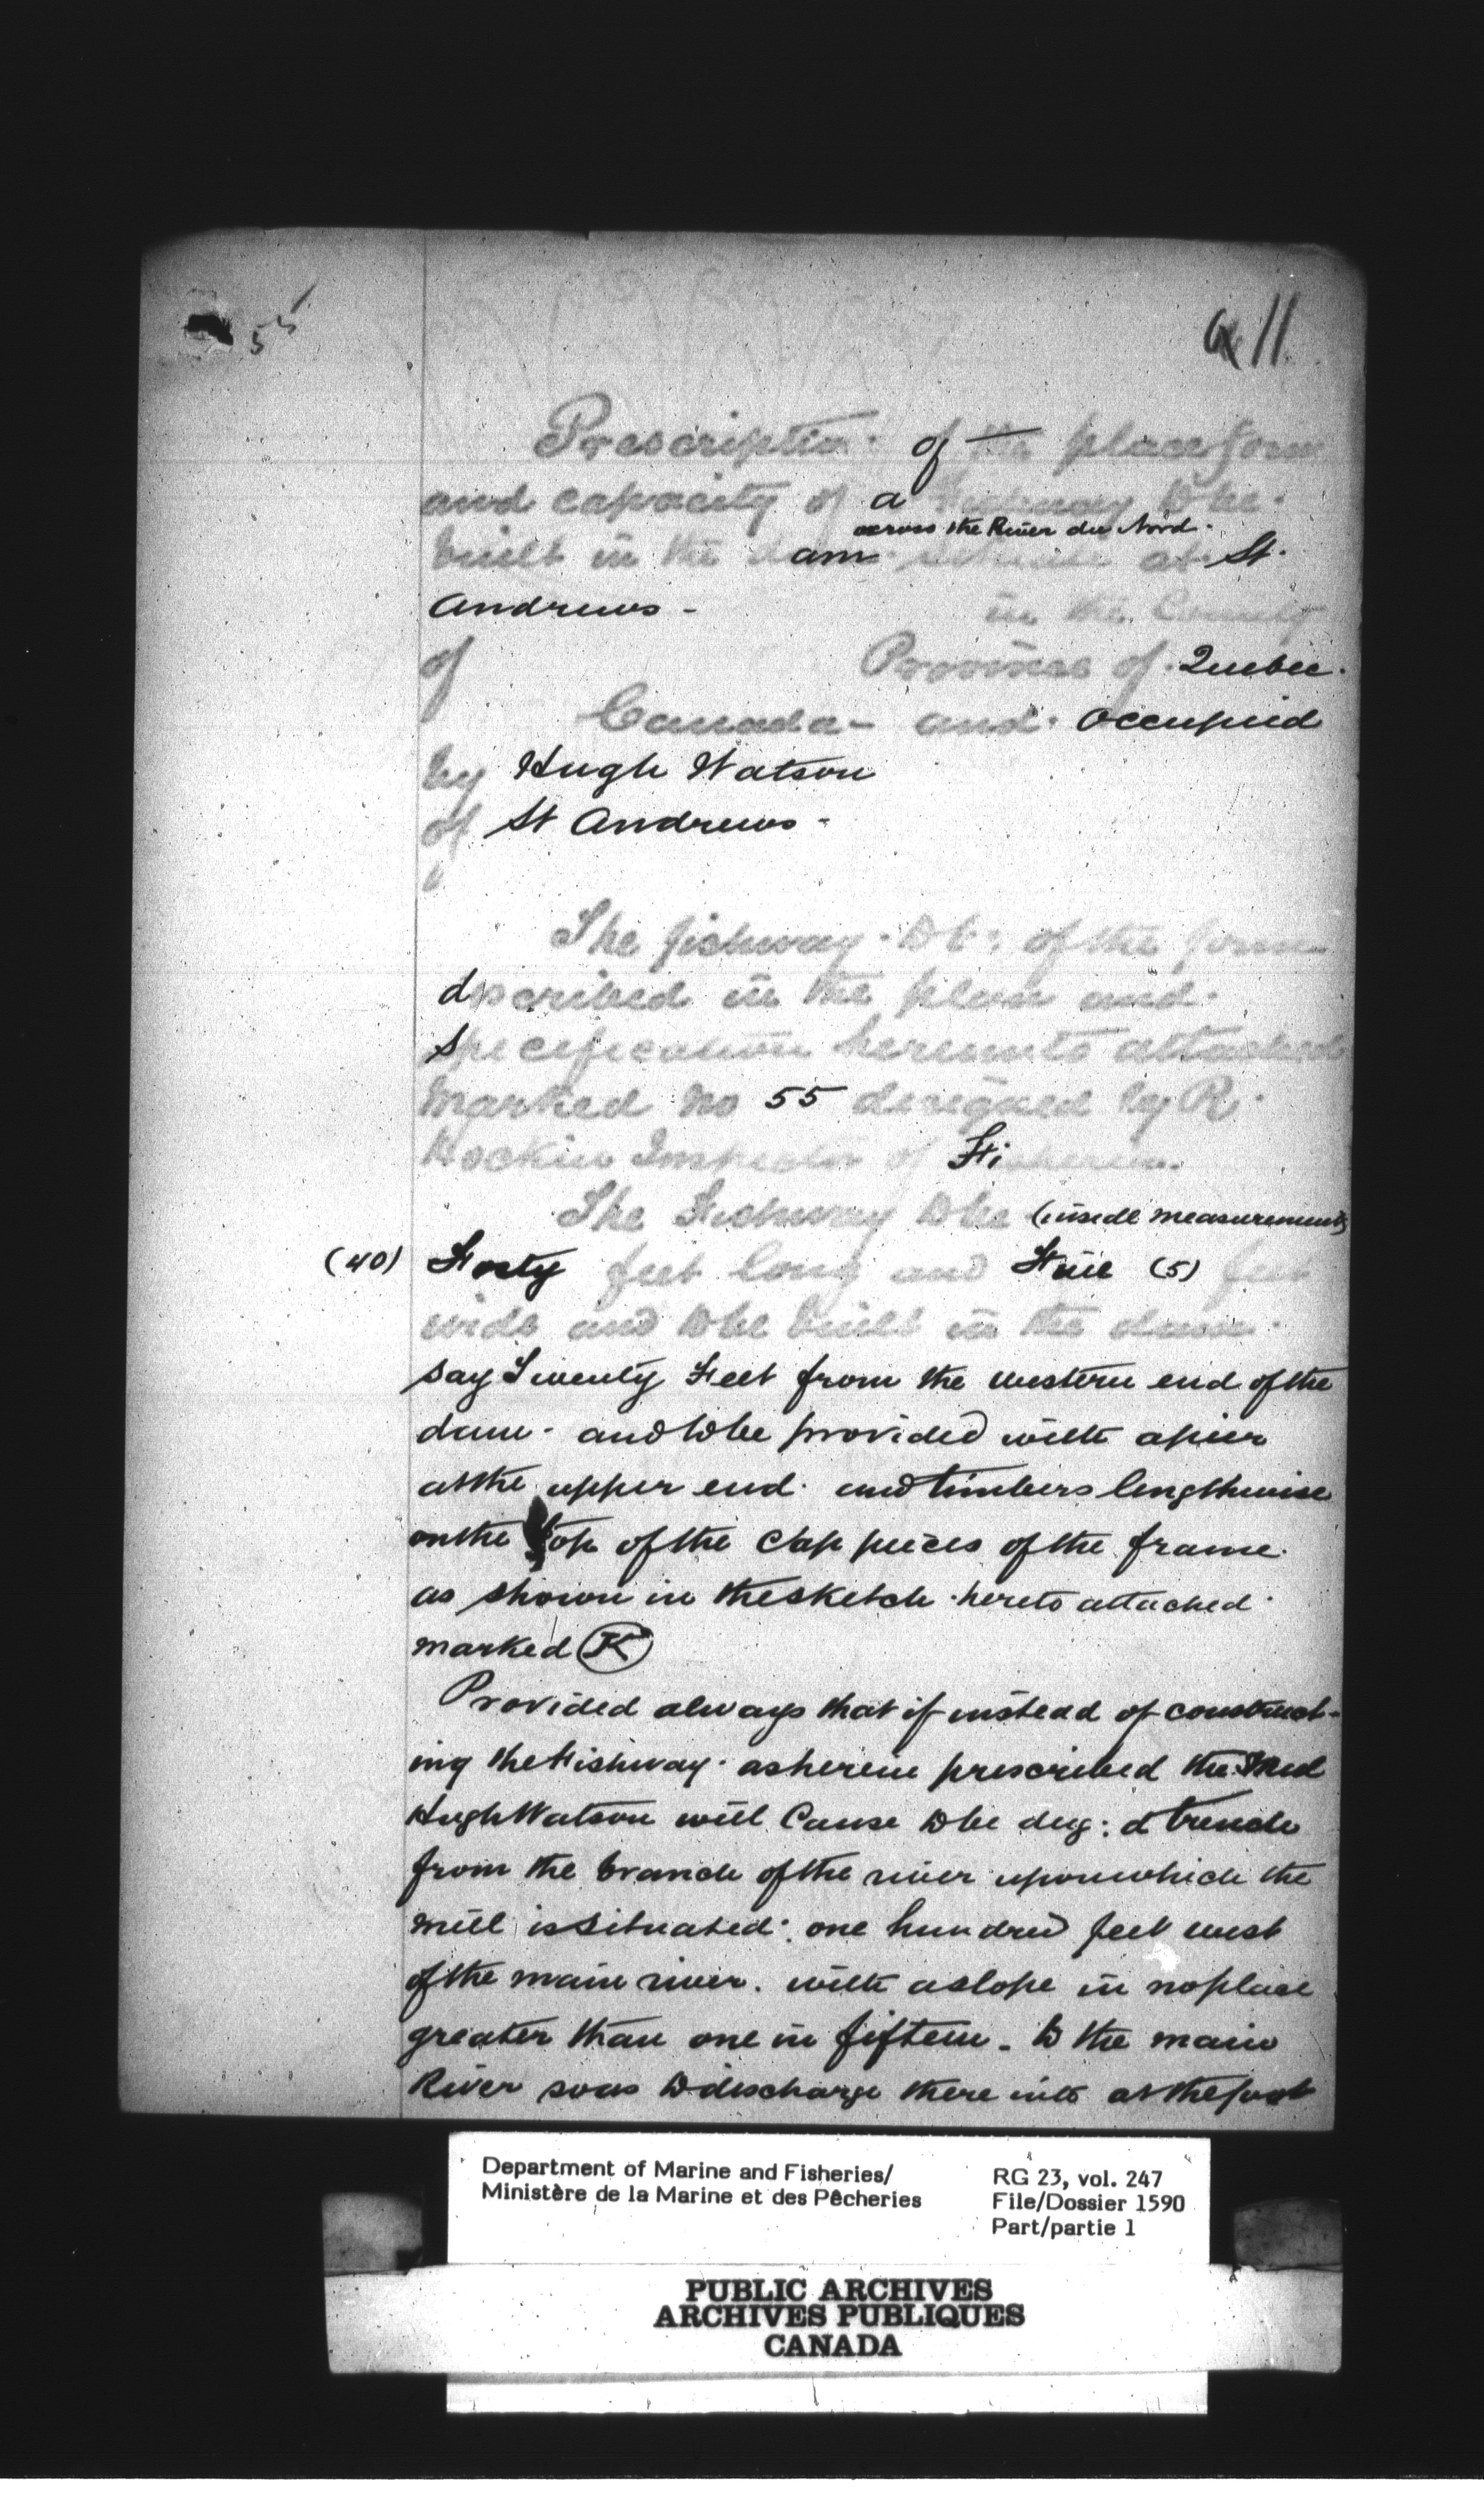 55
11
Prescription of the place form
and capacity of a Fishway to be
across the River du Nord.
built in the dam situate at St.
Andrews - in the County
of Province of Quebec.
Canada - and occupied
by Hugh Watson
of St Andrews -
The fishway to be of the form
described in the plan and
specification hereunto attached
marked No 55 designed by R.
Hockin Inspector of Fisheries.
The Fishway to be (inside measurements)
(40) Forty feet long and Five (5) feet
wide and to be built in the dam
say Twenty Feet from the western end of the
dam - and to be provided with a pier
at the upper end. and timbers lengthwise
on the top of the cap pieces of the frame.
as shown in the sketch hereto attached
marked K
Provided always that if instead of construct-
ing the Fishway as herein prescribed the said
Hugh Watson will cause to be dug: a trench
from the branch of the river upon which the
mill is situated: one hundred feet west
of the main river. with a slope in no place
greater than one in fifteen - to the main
River so as to discharge there into at the foot
Department of Marine and Fisheries/
Ministère de la Marine et des Pêcheries
RG 23, vol. 247
File/Dossier 1590
Part/partie 1
PUBLIC ARCHIVES
ARCHIVES PUBLIQUES
CANADA